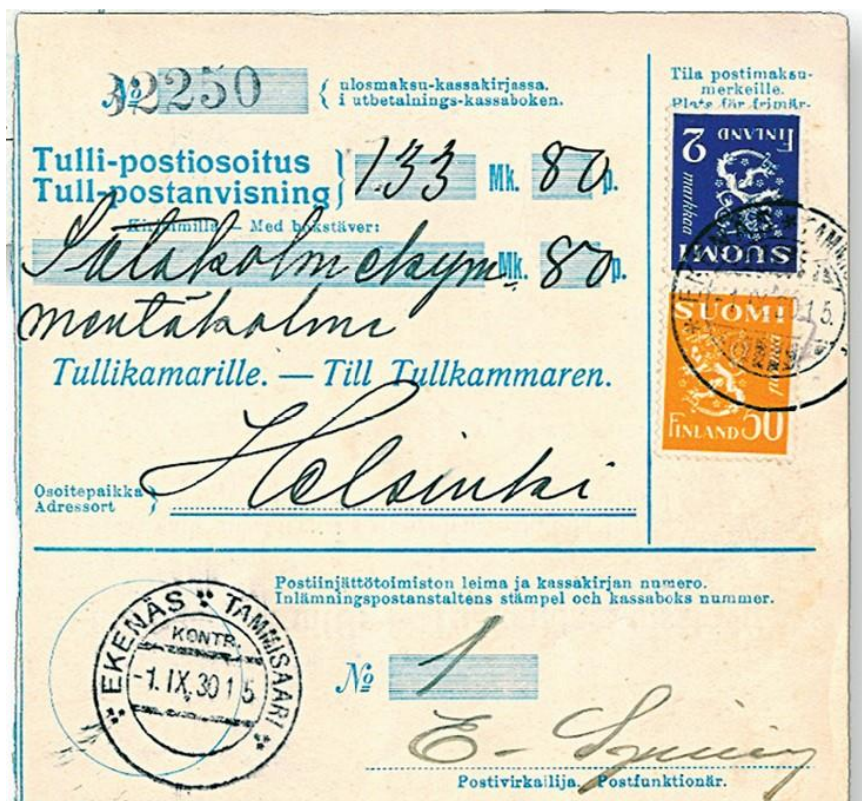 № 2250 { ulosmaksu-kassakirjassa.
i utbetalnings-kassaboken.
Tila postimaksu-
merkeille.
Plats för frimär-
Tulli-postiosoitus
Tull-postanvisning } 133 Mk. 80 p.
Kirjaimilla — Med bokstäver:
Satakolmekym- Mk. 80 p.
mentäkolme
FINLAND 2
markkaa
SUOMI
SUOMI
FINLAND 50
Tullikamarille. — Till Tullkammaren.
Osoitepaikka
Adressort } Helsinki
Postiinjättötoimiston leima ja kassakirjan numero.
Inlämningspostanstaltens stämpel och kassaboks nummer.
EKENÄS TAMMISAARI
KONTR.
-1.IX.30 15
№ 1
E.
Postivirkailija. Postfunktionär.